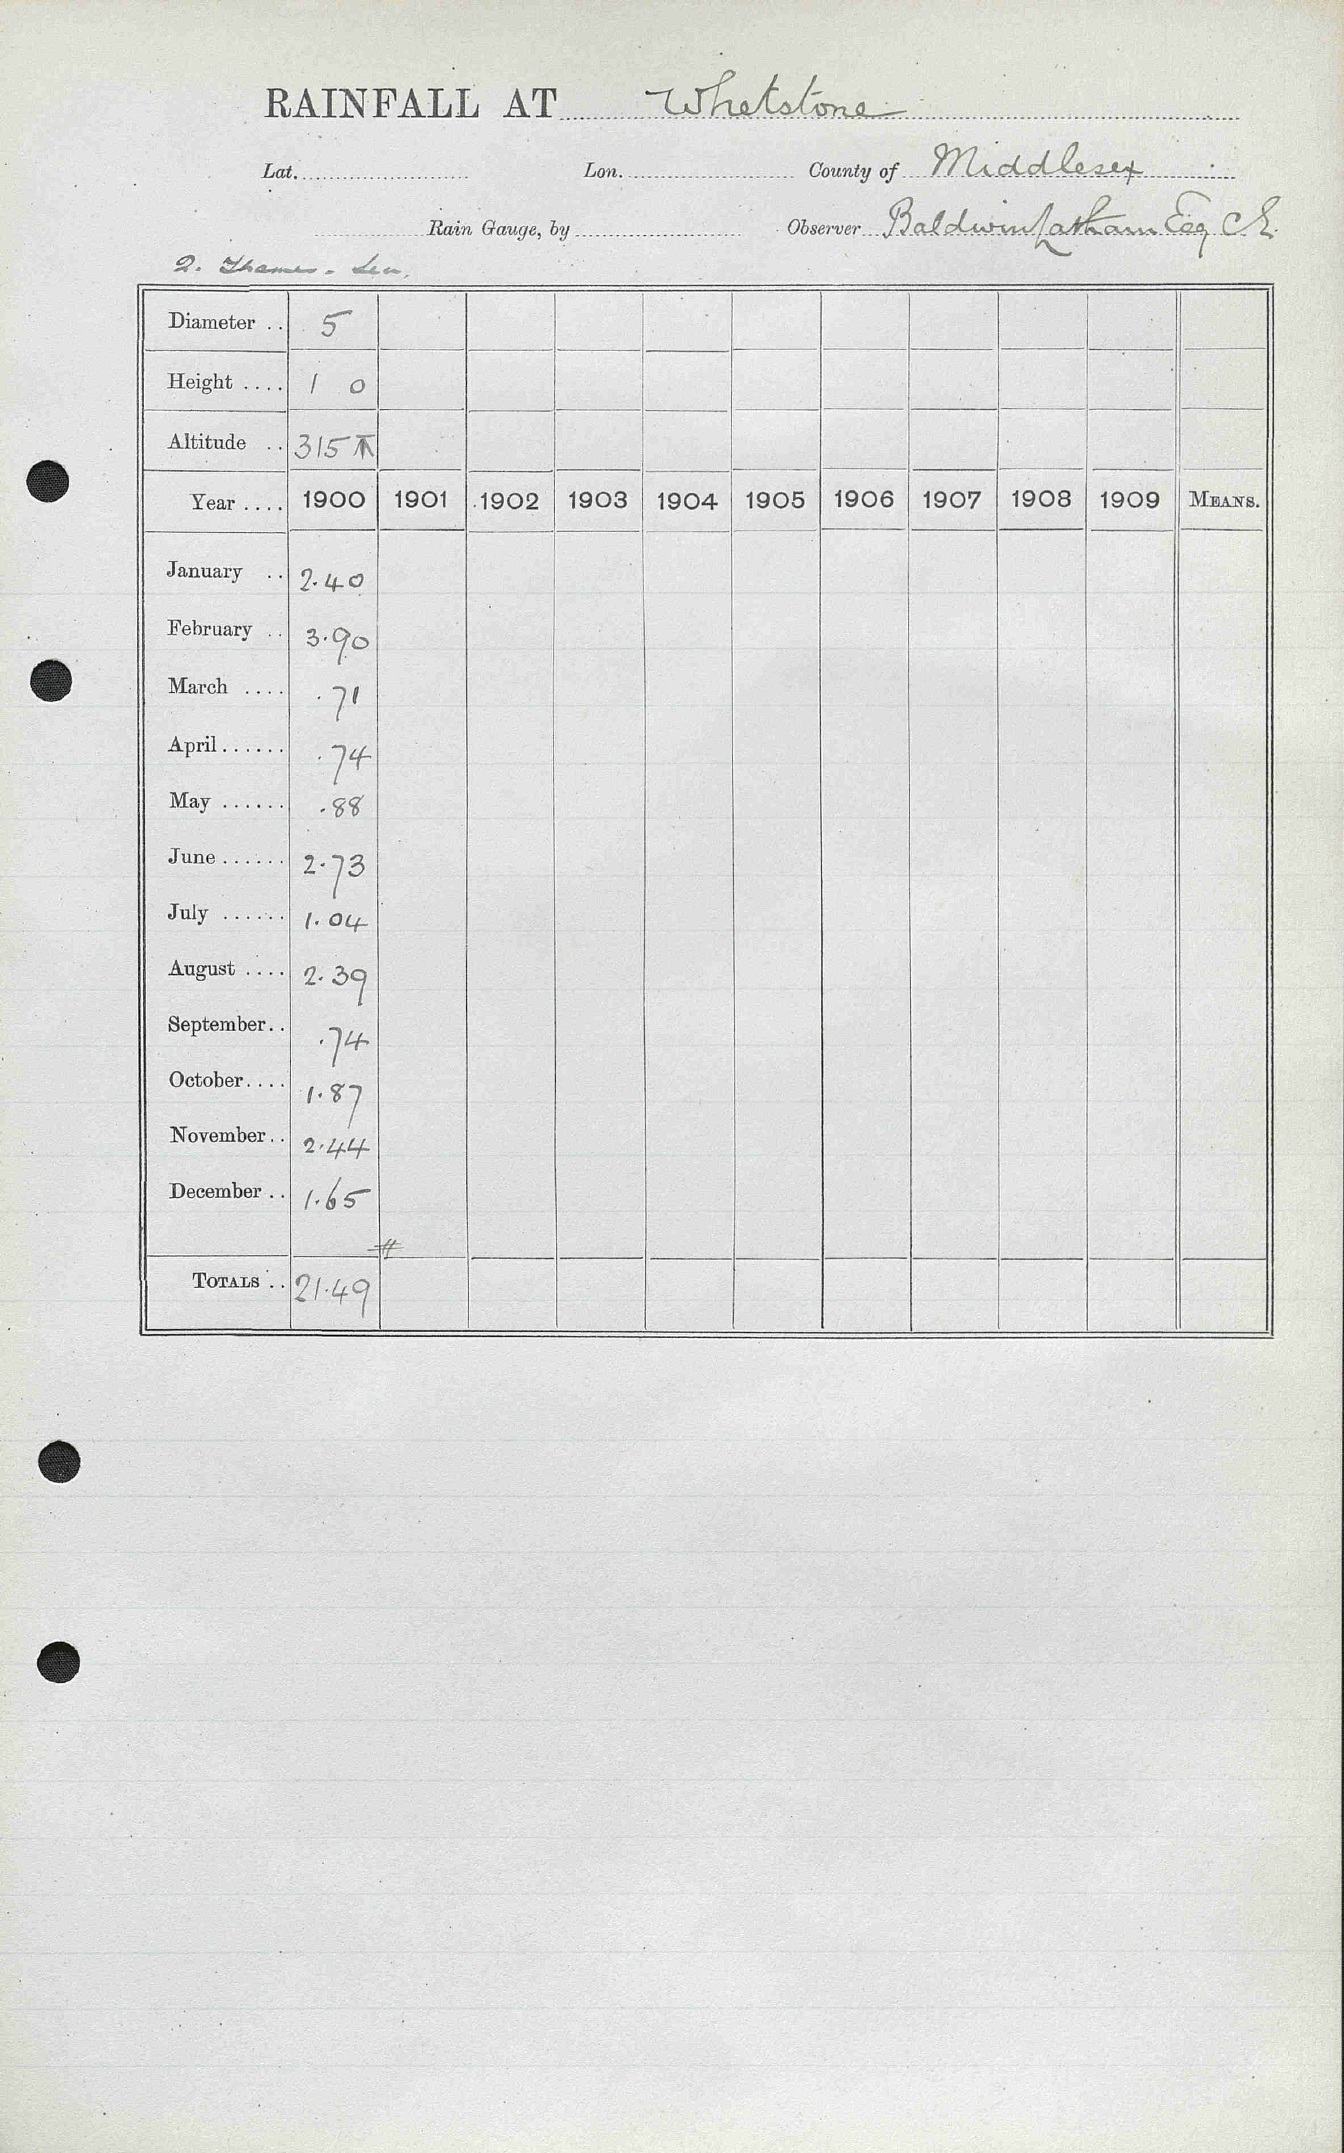 RAINFALL AT Whetstone
Lat. Lon. County of Middlesex
Rain Gauge, by Observer Baldwin Latham Esq C.E.
2. Thames - Lea.
Diameter .. 5
Height .... 1 0
Altitude .. 315
Year .... 1900 1901 1902 1903 1904 1905 1906 1907 1908 1909 MEANS.
January .. 2.40
February .. 3.90
March .... .71
April...... .74
May ...... .88
June...... 2.73
July ...... 1.04
August .... 2.39
September.. .74
October.... 1.87
November.. 2.44
December.. 1.65
#
TOTALS .. 21.49